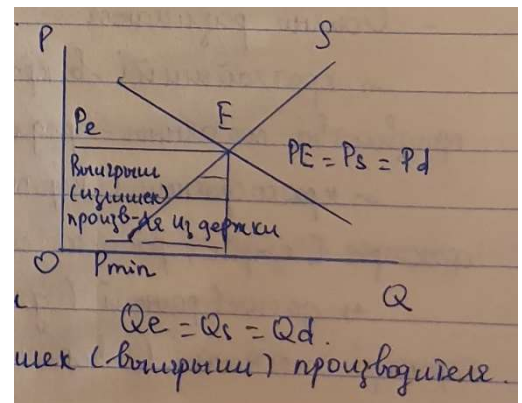 P
S
Pe
E
PE = Ps = Pd
Выигрыш
(излишек)
произв-ля издержки
O
Pmin
Q
Qe = Qs = Qd.
шек (выигрыш) производителя.